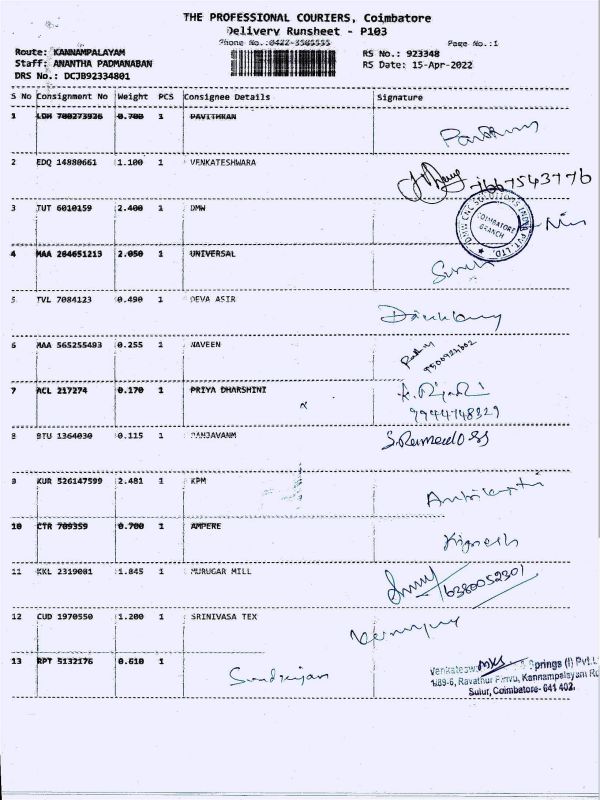 THE PROFESSIONAL COURIERS, Coimbatore
Delivery Runsheet - P103
Phone No.:0422-3505555 Page No.:1
Route: KANNAMPALAYAM RS No.: 923348
Staff: ANANTHA PADMANABAN RS Date: 15-Apr-2022
DRS No.: DCJB92334801
S No Consignment No Weight PCS Consignee Details Signature
1 LDH 700273926 0.700 1 PAVITHRAN
2 EDQ 14880661 1.100 1 VENKATESHWARA
7667543776
3 TUT 6010159 2.400 1 DMW
DMW CNC SOLUTIONS INDIA PVT. LTD.
COIMBATORE
BRANCH
4 MAA 264651213 2.050 1 UNIVERSAL
5 TVL 7084123 0.490 1 DEVA ASIR
6 MAA 565255493 0.255 1 NAVEEN
7 ACL 217274 0.170 1 PRIYA DHARSHINI
9944748329
8 BTU 1364030 0.115 1
9 KUR 526147599 2.481 1 KPM
10 CTR 709359 0.700 1 AMPERE
11 KKL 2319081 1.845 1 MURUGAR MILL
6380052301
12 CUD 1970550 1.200 1 SRINIVASA TEX
13 RPT 5132176 0.610 1
Springs (I) Pvt.L
1/89-6, Ravathur Pirivu, Kannampalayam Ro
Sulur, Coimbatore- 641 402.